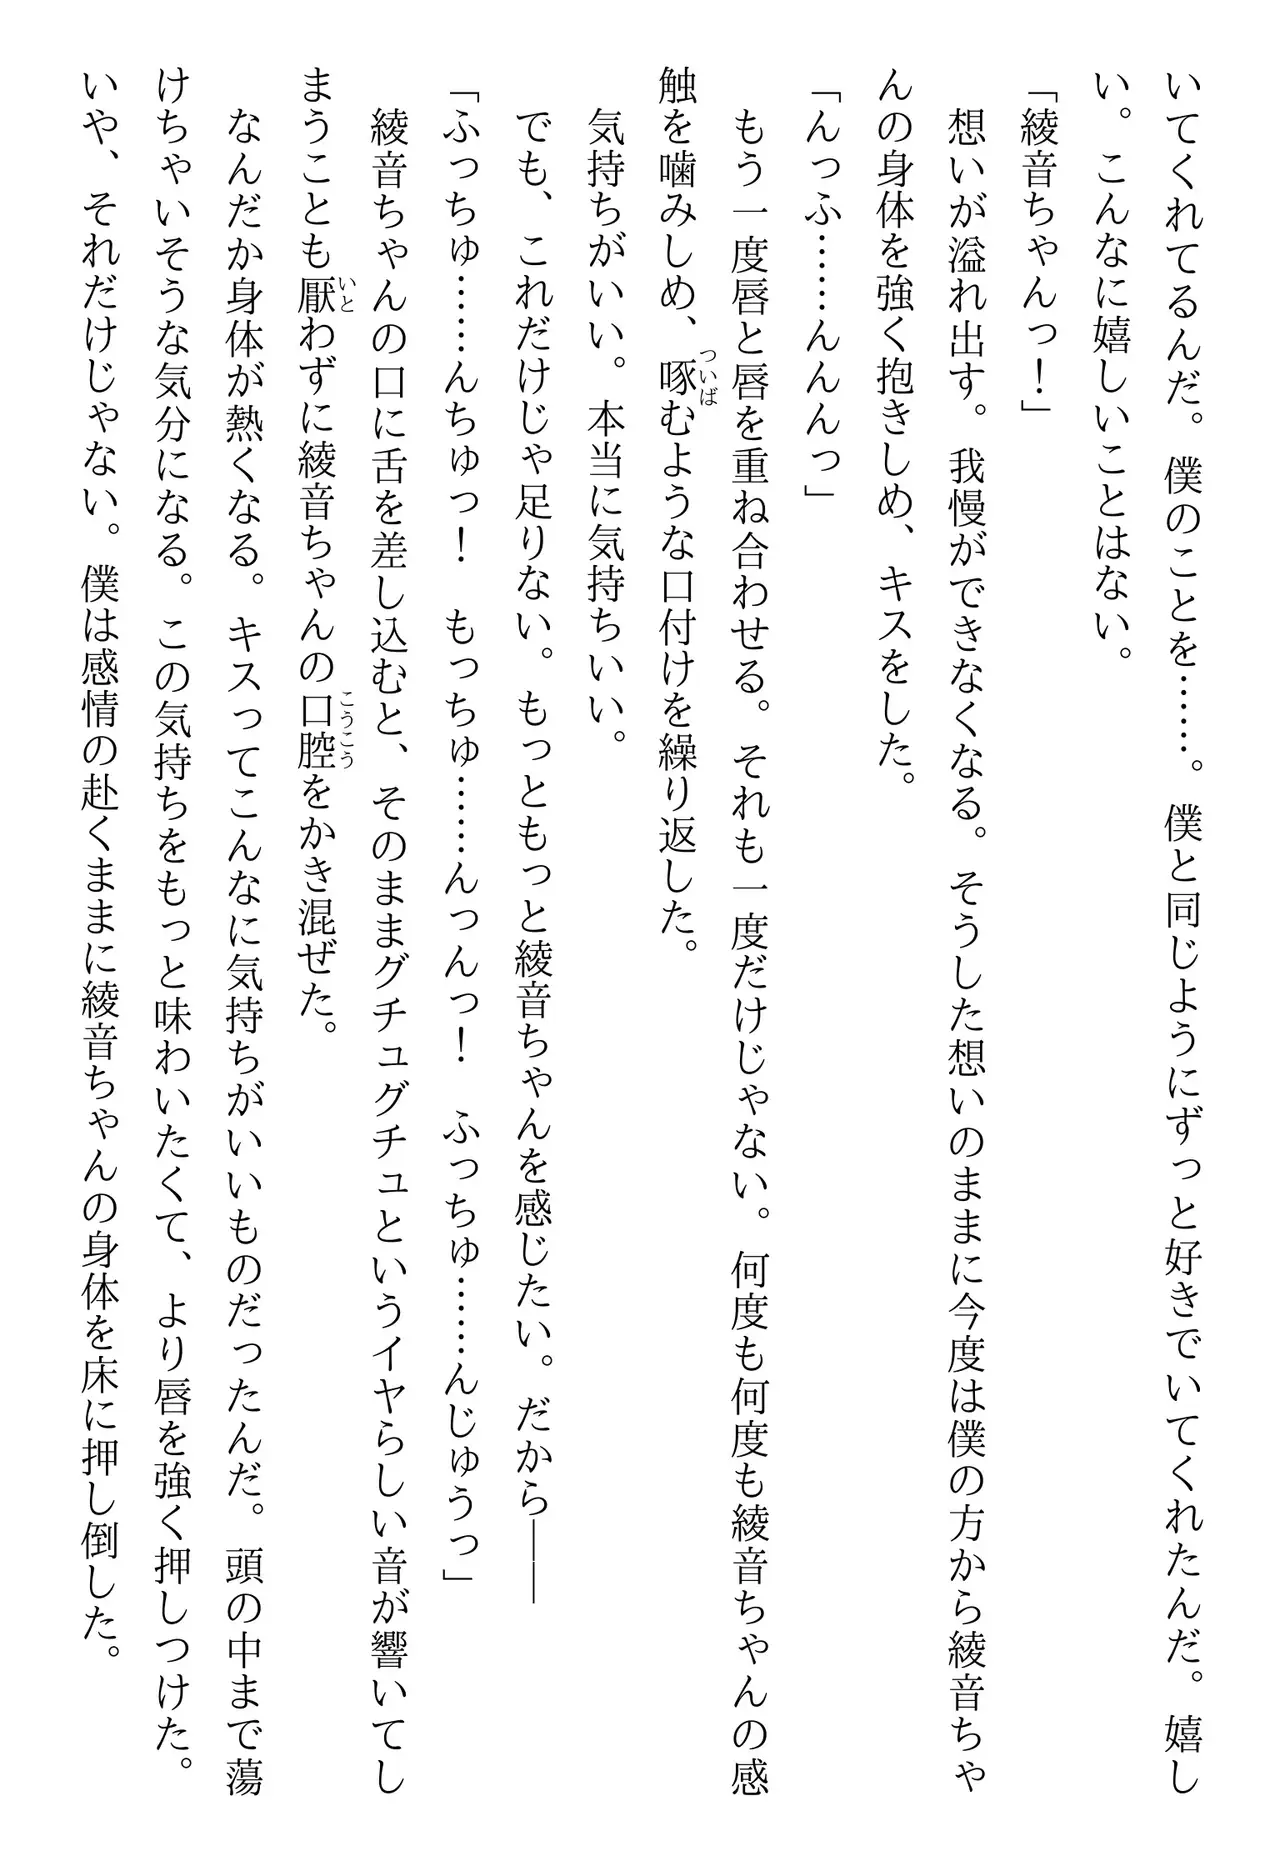 いてくれてるんだ。僕のことを……。僕と同じようにずっと好きでいてくれたんだ。嬉し
い。こんなに嬉しいことはない。
「綾音ちゃんっ！」
　想いが溢れ出す。我慢ができなくなる。そうした想いのままに今度は僕の方から綾音ちゃ
んの身体を強く抱きしめ、キスをした。
「んっふ……んんんっ」
　もう一度唇と唇を重ね合わせる。それも一度だけじゃない。何度も何度も綾音ちゃんの感
触を噛みしめ、啄むような口付けを繰り返した。
　気持ちがいい。本当に気持ちいい。
　でも、これだけじゃ足りない。もっともっと綾音ちゃんを感じたい。だから――
「ふっちゅ……んちゅっ！　もっちゅ……んっんっ！　ふっちゅ……んじゅうっ」
　綾音ちゃんの口に舌を差し込むと、そのままグチュグチュというイヤらしい音が響いてし
まうことも厭わずに綾音ちゃんの口腔をかき混ぜた。
　なんだか身体が熱くなる。キスってこんなに気持ちがいいものだったんだ。頭の中まで蕩
けちゃいそうな気分になる。この気持ちをもっと味わいたくて、より唇を強く押しつけた。
いや、それだけじゃない。僕は感情の赴くままに綾音ちゃんの身体を床に押し倒した。